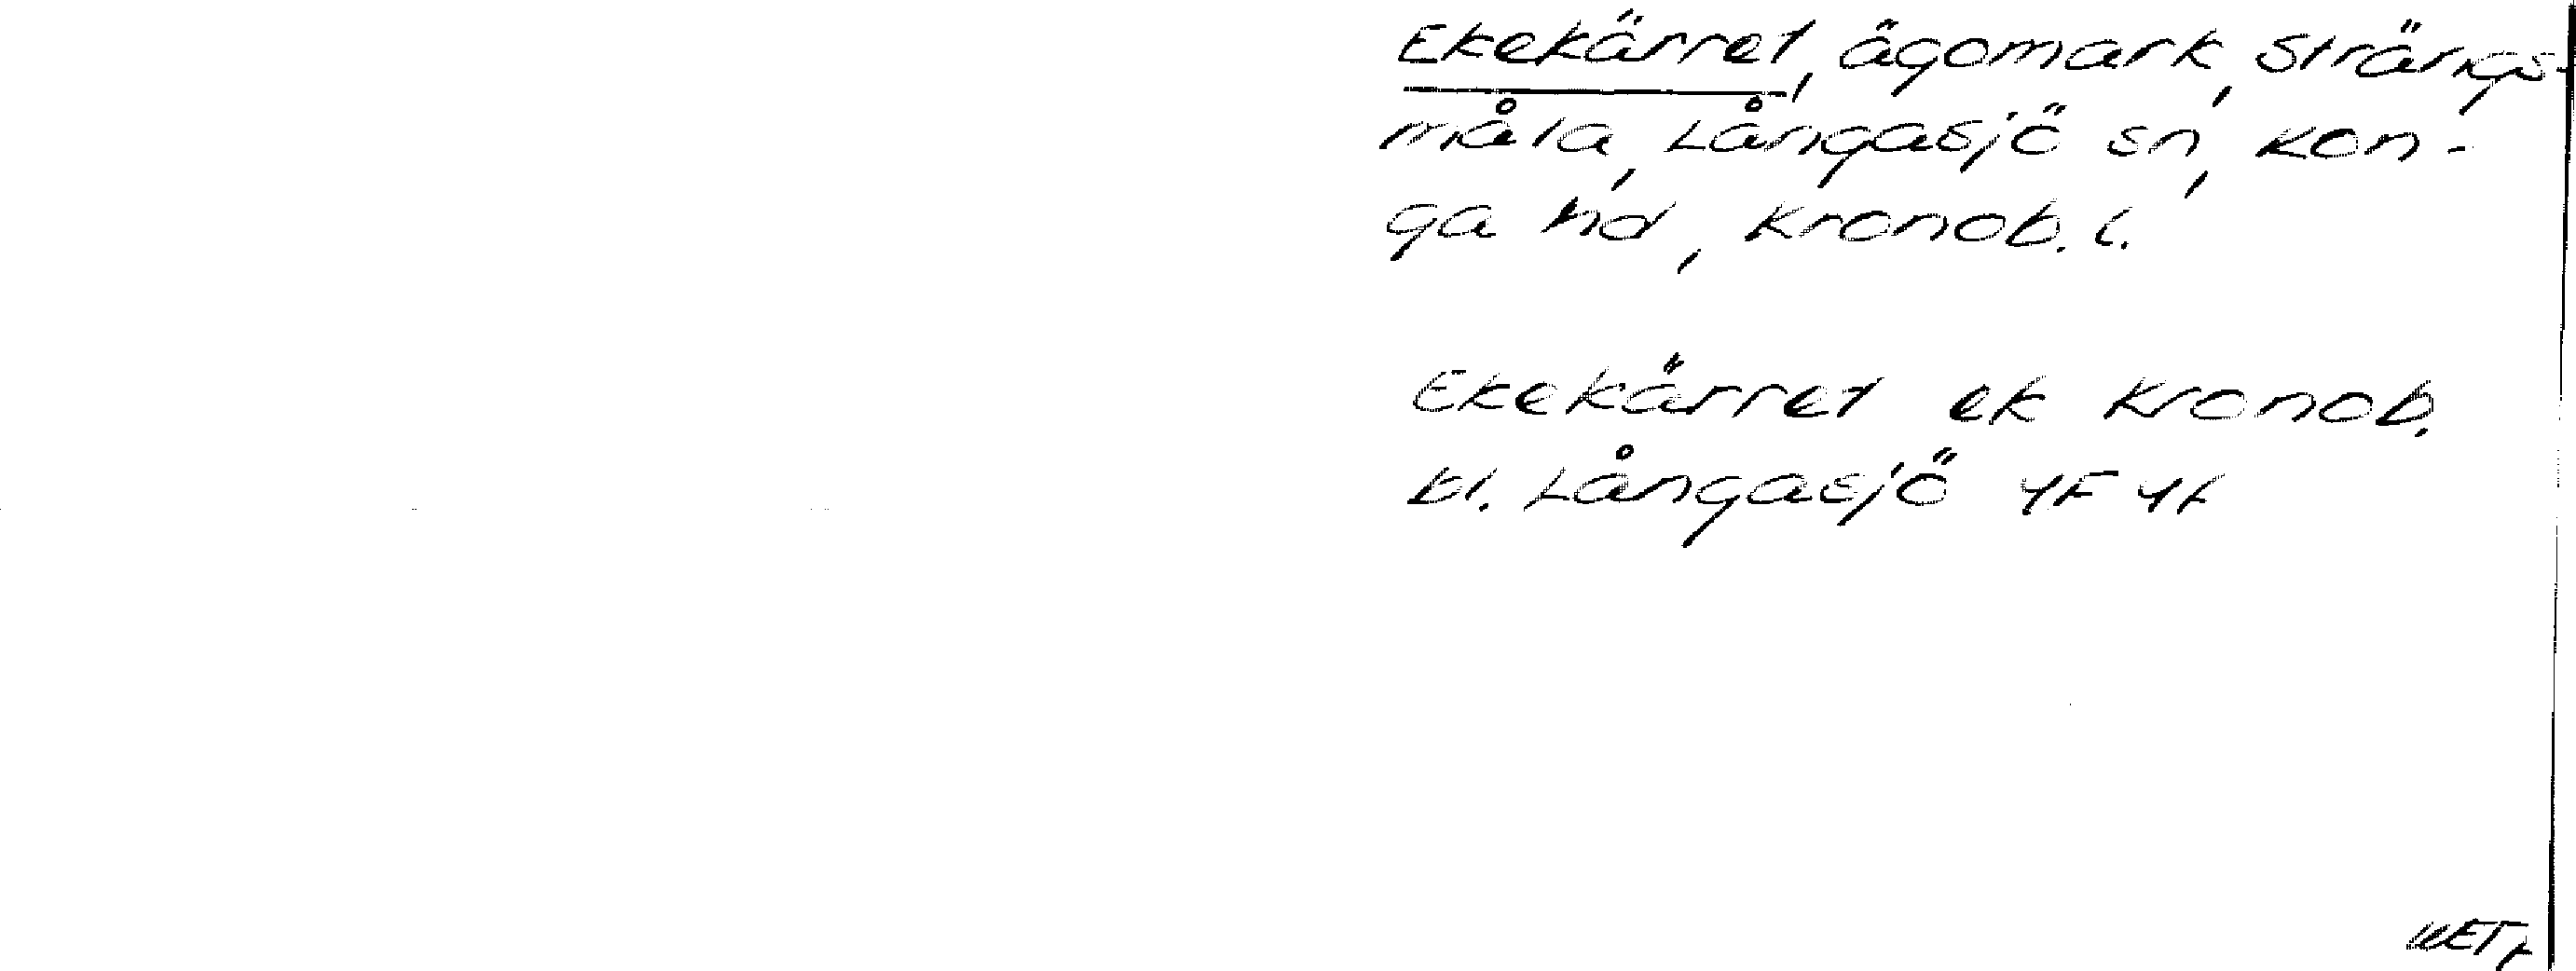 Ekekärret, ägomark, Strängs-
måla, Långasjö sn, Kon-
ga hd, Kronob. l.
Ekekärret ek Kronob.
bl. Långasjö 4F 4f